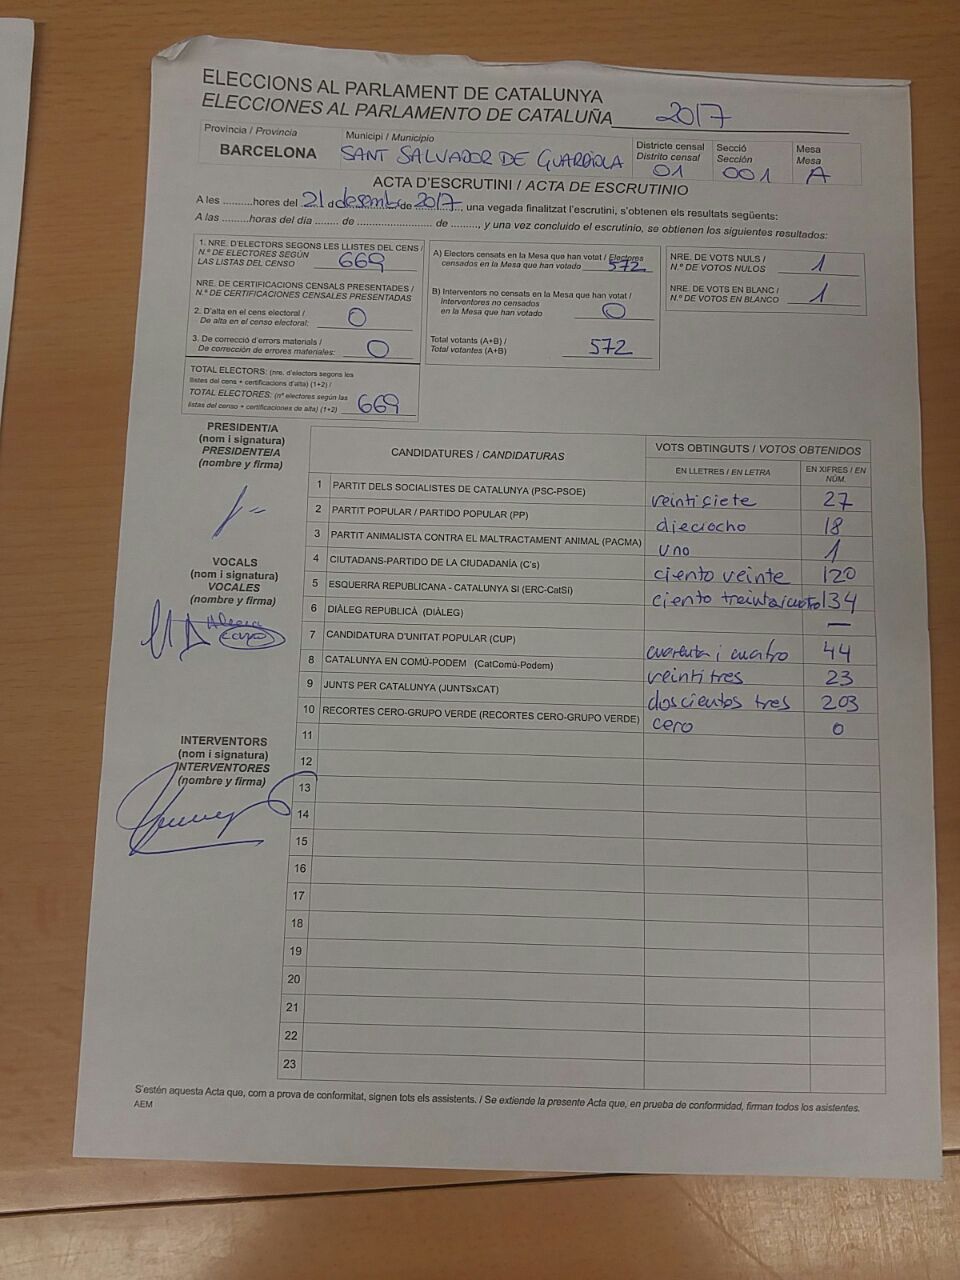 ELECCIONS AL PARLAMENT DE CATALUNYA
ELECCIONES AL PARLAMENTO DE CATALUÑA 2017
Provincia / Provincia Municipi / Municipio Districte censal Distrito censal Secció Sección Mesa Mesa
BARCELONA SANT SALVADOR DE GUARDIOLA 01 001 A
ACTA D'ESCRUTINI / ACTA DE ESCRUTINIO
A les ..........hores del 21 d desembre de 2017, una vegada finalitzat l'escrutini, s'obtenen els resultats següents:
A las .........horas del día ........ de ......................... de ........., y una vez concluido el escrutinio, se obtienen los siguientes resultados:
1. NRE. D'ELECTORS SEGONS LES LLISTES DEL CENS /
N.º DE ELECTORES SEGÚN
LAS LISTAS DEL CENSO 669
NRE. DE CERTIFICACIONS CENSALS PRESENTADES /
N.º DE CERTIFICACIONES CENSALES PRESENTADAS
2. D'alta en el cens electoral /
De alta en el censo electoral: 0
3. De correcció d'errors materials /
De corrección de errores materiales: 0
TOTAL ELECTORS: (nre. d'electors segons les
llistes del cens + certificacions d'alta) (1+2) /
TOTAL ELECTORES: (nº electores según las
listas del censo + certificaciones de alta) (1+2) 669
A) Electors censats en la Mesa que han votat / Electores
censados en la Mesa que han votado 572
B) Interventors no censats en la Mesa que han votat /
Interventores no censados
en la Mesa que han votado 0
Total votants (A+B) /
Total votantes (A+B) 572
NRE. DE VOTS NULS /
N.º DE VOTOS NULOS 1
NRE. DE VOTS EN BLANC /
N.º DE VOTOS EN BLANCO 1
PRESIDENT/A
(nom i signatura)
PRESIDENTE/A
(nombre y firma)
VOCALS
(nom i signatura)
VOCALES
(nombre y firma)
INTERVENTORS
(nom i signatura)
INTERVENTORES
(nombre y firma)
CANDIDATURES / CANDIDATURAS VOTS OBTINGUTS / VOTOS OBTENIDOS
EN LLETRES / EN LETRA EN XIFRES / EN NÚM.
1 PARTIT DELS SOCIALISTES DE CATALUNYA (PSC-PSOE) veintisiete 27
2 PARTIT POPULAR / PARTIDO POPULAR (PP) dieciocho 18
3 PARTIT ANIMALISTA CONTRA EL MALTRACTAMENT ANIMAL (PACMA) uno 1
4 CIUTADANS-PARTIDO DE LA CIUDADANÍA (C's) ciento veinte 120
5 ESQUERRA REPUBLICANA - CATALUNYA SI (ERC-CatSí) ciento treintaicuatro 134
6 DIÀLEG REPUBLICÀ (DIÀLEG) —
7 CANDIDATURA D'UNITAT POPULAR (CUP) cuarenta i cuatro 44
8 CATALUNYA EN COMÚ-PODEM (CatComú-Podem) veintitres 23
9 JUNTS PER CATALUNYA (JUNTSxCAT) doscientos tres 203
10 RECORTES CERO-GRUPO VERDE (RECORTES CERO-GRUPO VERDE) cero 0
11
12
13
14
15
16
17
18
19
20
21
22
23
S'estén aquesta Acta que, com a prova de conformitat, signen tots els assistents. / Se extiende la presente Acta que, en prueba de conformidad, firman todos los asistentes.
AEM